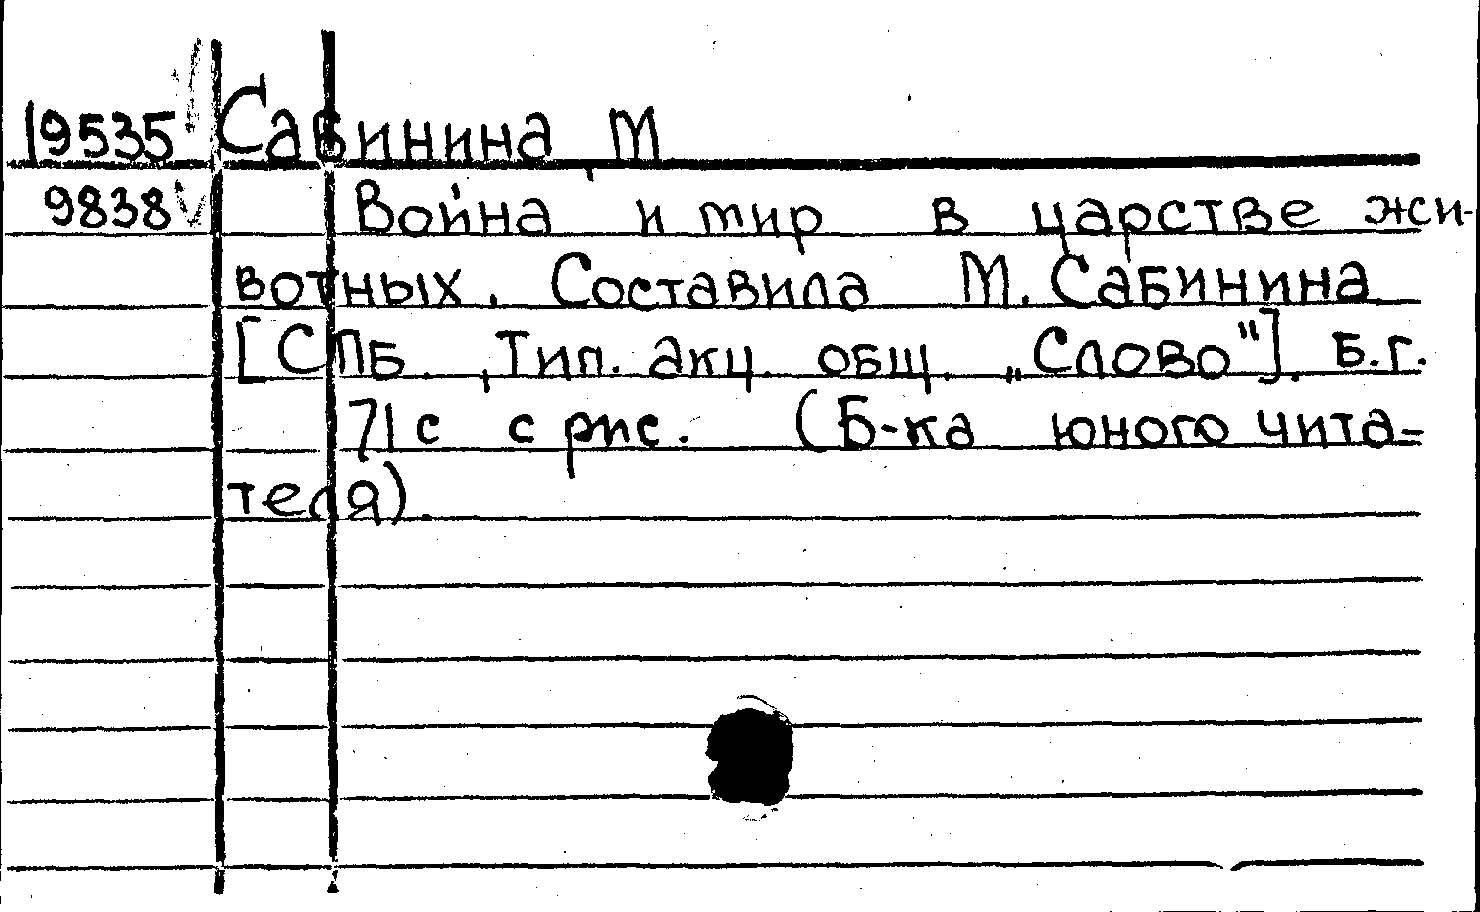 19535 Сабинина М
9838 Война и мир в царстве жи-
вотных. Составила М. Сабинина
[СПБ. Тип. акц. общ. „Слово"]. Б.г.
71с с рис. (Б-ка юного чита-
теля).